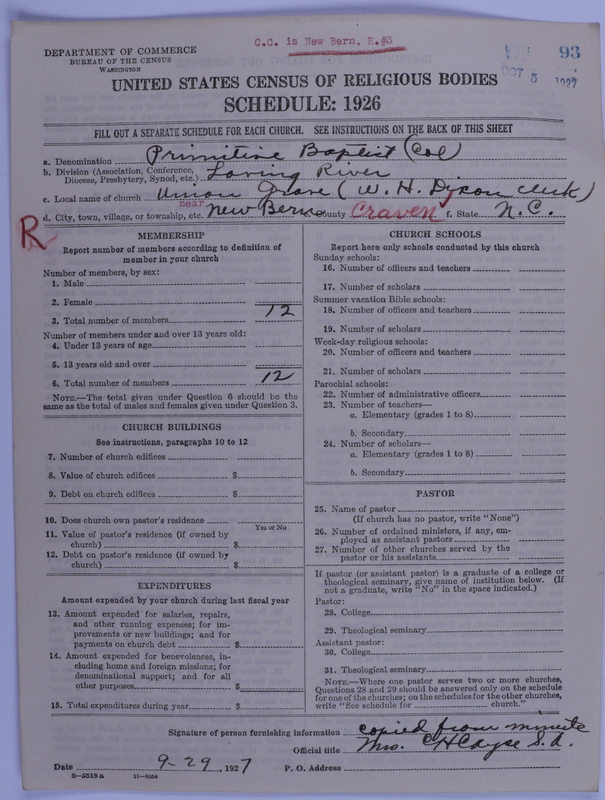 C.C. is New Bern, R.#3
DEPARTMENT OF COMMERCE
BUREAU OF THE CENSUS
WASHINGTON
93
OCT 5 1927
UNITED STATES CENSUS OF RELIGIOUS BODIES
SCHEDULE: 1926
FILL OUT A SEPARATE SCHEDULE FOR EACH CHURCH. SEE INSTRUCTIONS ON THE BACK OF THIS SHEET
a. Denomination Primitive Baptist (Col)
b. Division (Association, Conference, Diocese, Presbytery, Synod, etc.) Loving River
c. Local name of church Union Grove (W. H. Dixon clerk)
d. City, town, village, or township, etc. near New Bern County Craven f. State N.C.
R
MEMBERSHIP
Report number of members according to definition of
member in your church
Number of members, by sex:
1. Male
2. Female
3. Total number of members 12
Number of members under and over 13 years old:
4. Under 13 years of age
5. 13 years old and over
6. Total number of members 12
NOTE.—The total given under Question 6 should be the
same as the total of males and females given under Question 3.
CHURCH BUILDINGS
See instructions, paragraphs 10 to 12
7. Number of church edifices
8. Value of church edifices $
9. Debt on church edifices $
10. Does church own pastor's residence
Yes or No
11. Value of pastor's residence (if owned by
church) $
12. Debt on pastor's residence (if owned by
church) $
EXPENDITURES
Amount expended by your church during last fiscal year
13. Amount expended for salaries, repairs,
and other running expenses; for im-
provements or new buildings; and for
payments on church debt $
14. Amount expended for benevolences, in-
cluding home and foreign missions; for
denominational support; and for all
other purposes $
15. Total expenditures during year $
CHURCH SCHOOLS
Report here only schools conducted by this church
Sunday schools:
16. Number of officers and teachers
17. Number of scholars
Summer vacation Bible schools:
18. Number of officers and teachers
19. Number of scholars
Week-day religious schools:
20. Number of officers and teachers
21. Number of scholars
Parochial schools:
22. Number of administrative officers
23. Number of teachers—
a. Elementary (grades 1 to 8)
b. Secondary
24. Number of scholars—
a. Elementary (grades 1 to 8)
b. Secondary
PASTOR
25. Name of pastor
(If church has no pastor, write "None")
26. Number of ordained ministers, if any, em-
ployed as assistant pastors
27. Number of other churches served by the
pastor or his assistants
If pastor (or assistant pastor) is a graduate of a college or
theological seminary, give name of institution below. (If
not a graduate, write "No" in the space indicated.)
Pastor:
28. College
29. Theological seminary
Assistant pastor:
30. College
31. Theological seminary
NOTE.—Where one pastor serves two or more churches,
Questions 28 and 29 should be answered only on the schedule
for one of the churches; on the schedules for the other churches,
write "See schedule for church."
Signature of person furnishing information copied from minute
Official title Mrs. C H Cayse S.A.
Date 9-29, 1927 P. O. Address
8-5518a 11-9054